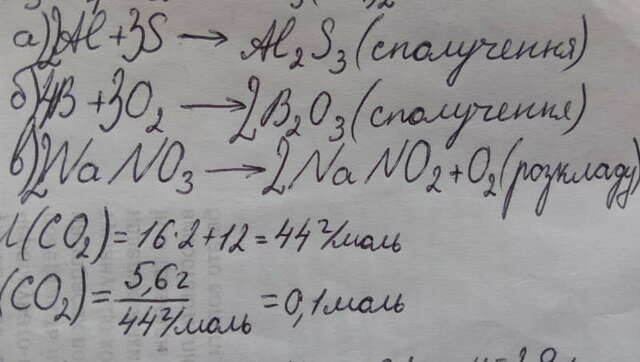 а) 2Al + 3S → Al₂S₃ (сполучення)
б) 4B + 3O₂ → 2B₂O₃ (сполучення)
в) 2NaNO₃ → 2NaNO₂ + O₂ (розкладу)
(CO₂) = 16·2+12 = 44 г/моль
(CO₂) = 5,6г / 44 г/моль = 0,1 моль